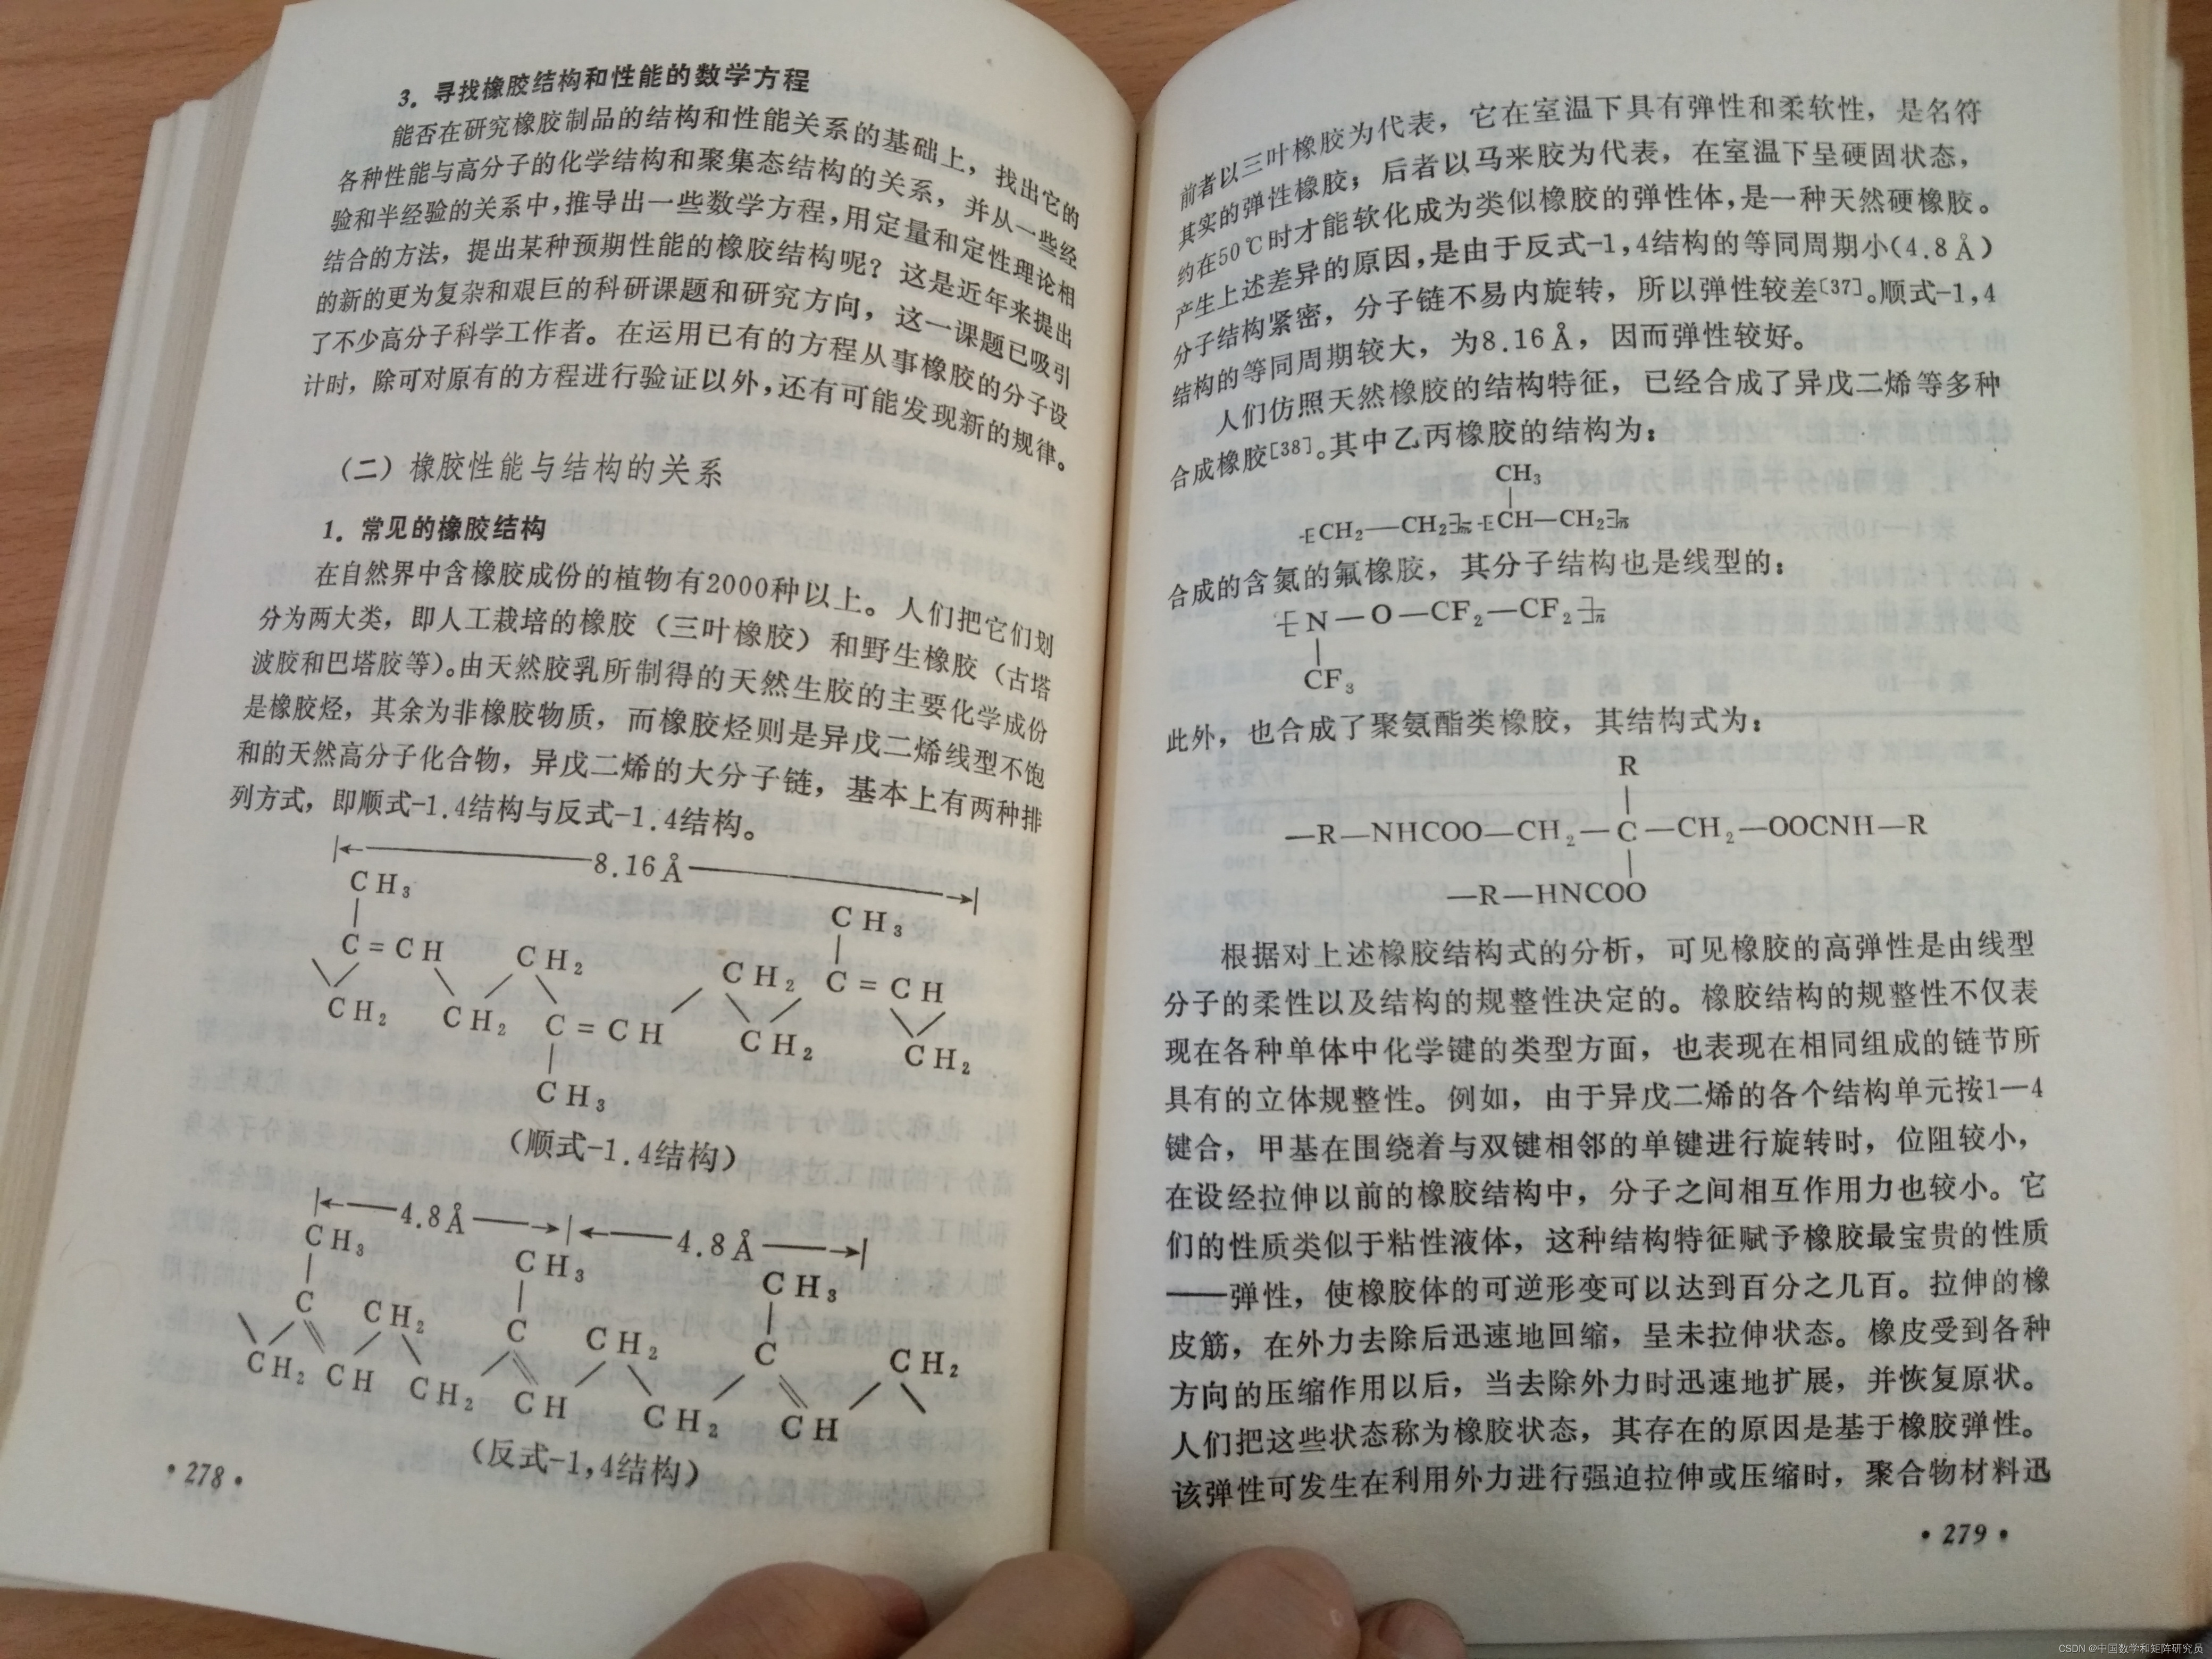 3. 寻找橡胶结构和性能的数学方程
能否在研究橡胶制品的结构和性能关系的基础上，找出它的
各种性能与高分子的化学结构和聚集态结构的关系，并从一些经
验和半经验的关系中，推导出一些数学方程，用定量和定性理论相
结合的方法，提出某种预期性能的橡胶结构呢？这是近年来提出
的新的更为复杂和艰巨的科研课题和研究方向，这一课题已吸引
了不少高分子科学工作者。在运用已有的方程从事橡胶的分子设
计时，除可对原有的方程进行验证以外，还有可能发现新的规律。
（二）橡胶性能与结构的关系
1. 常见的橡胶结构
在自然界中含橡胶成份的植物有2000种以上。人们把它们划
分为两大类，即人工栽培的橡胶（三叶橡胶）和野生橡胶（古塔
波胶和巴塔胶等）。由天然胶乳所制得的天然生胶的主要化学成份
是橡胶烃，其余为非橡胶物质，而橡胶烃则是异戊二烯线型不饱
和的天然高分子化合物，异戊二烯的大分子链，基本上有两种排
列方式，即顺式-1.4结构与反式-1.4结构。
8.16Å
CH₃
CH₃
C=CH
CH₂
CH₂
C=CH
CH₂
CH₂
C=CH
CH₂
CH₂
CH₃
（顺式-1.4结构）
4.8Å
4.8Å
CH₃
CH₃
CH₃
C
CH₂
C
CH₂
C
CH₂
CH₂
CH
CH₂
CH
CH₂
CH
（反式-1,4结构）
·278·
前者以三叶橡胶为代表，它在室温下具有弹性和柔软性，是名符
其实的弹性橡胶；后者以马来胶为代表，在室温下呈硬固状态，
约在50℃时才能软化成为类似橡胶的弹性体，是一种天然硬橡胶。
产生上述差异的原因，是由于反式-1,4结构的等同周期小(4.8Å)
分子结构紧密，分子链不易内旋转，所以弹性较差[37]。顺式-1,4
结构的等同周期较大，为8.16Å，因而弹性较好。
人们仿照天然橡胶的结构特征，已经合成了异戊二烯等多种
合成橡胶[38]。其中乙丙橡胶的结构为：
CH₃
-[CH₂—CH₂]ₘ-[CH—CH₂]ₙ
合成的含氮的氟橡胶，其分子结构也是线型的：
-[N—O—CF₂—CF₂]ₙ
CF₃
此外，也合成了聚氨酯类橡胶，其结构式为：
R
—R—NHCOO—CH₂—C—CH₂—OOCNH—R
—R—HNCOO
根据对上述橡胶结构式的分析，可见橡胶的高弹性是由线型
分子的柔性以及结构的规整性决定的。橡胶结构的规整性不仅表
现在各种单体中化学键的类型方面，也表现在相同组成的链节所
具有的立体规整性。例如，由于异戊二烯的各个结构单元按1—4
键合，甲基在围绕着与双键相邻的单键进行旋转时，位阻较小，
在设经拉伸以前的橡胶结构中，分子之间相互作用力也较小。它
们的性质类似于粘性液体，这种结构特征赋予橡胶最宝贵的性质
——弹性，使橡胶体的可逆形变可以达到百分之几百。拉伸的橡
皮筋，在外力去除后迅速地回缩，呈未拉伸状态。橡皮受到各种
方向的压缩作用以后，当去除外力时迅速地扩展，并恢复原状。
人们把这些状态称为橡胶状态，其存在的原因是基于橡胶弹性。
该弹性可发生在利用外力进行强迫拉伸或压缩时，聚合物材料迅
·279·
CSDN @中国数学和矩阵研究员